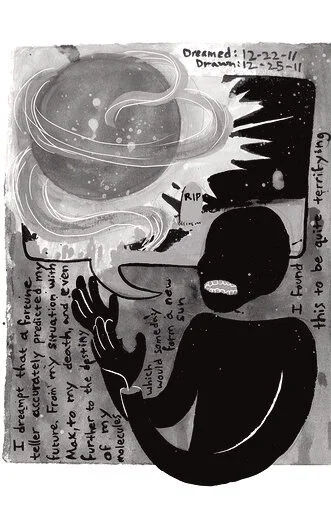 Dreamed: 12-22-11
Drawn: 12-25-11
RIP
I dreampt that a fortune
teller accurately predicted my
future. From my situation with
Mak, to my death, and even
further to the destiny
of my
molecules
which
would someday
form a new
sun
I found
this to be quite terrifying